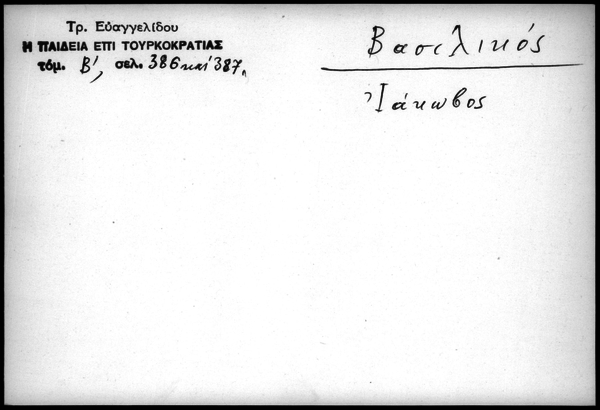 Τρ. Εὐαγγελίδου
Η ΠΑΙΔΕΙΑ ΕΠΙ ΤΟΥΡΚΟΚΡΑΤΙΑΣ
τόμ. Β', σελ. 386 και 387,
Βασιλικός
Ἰάκωβος